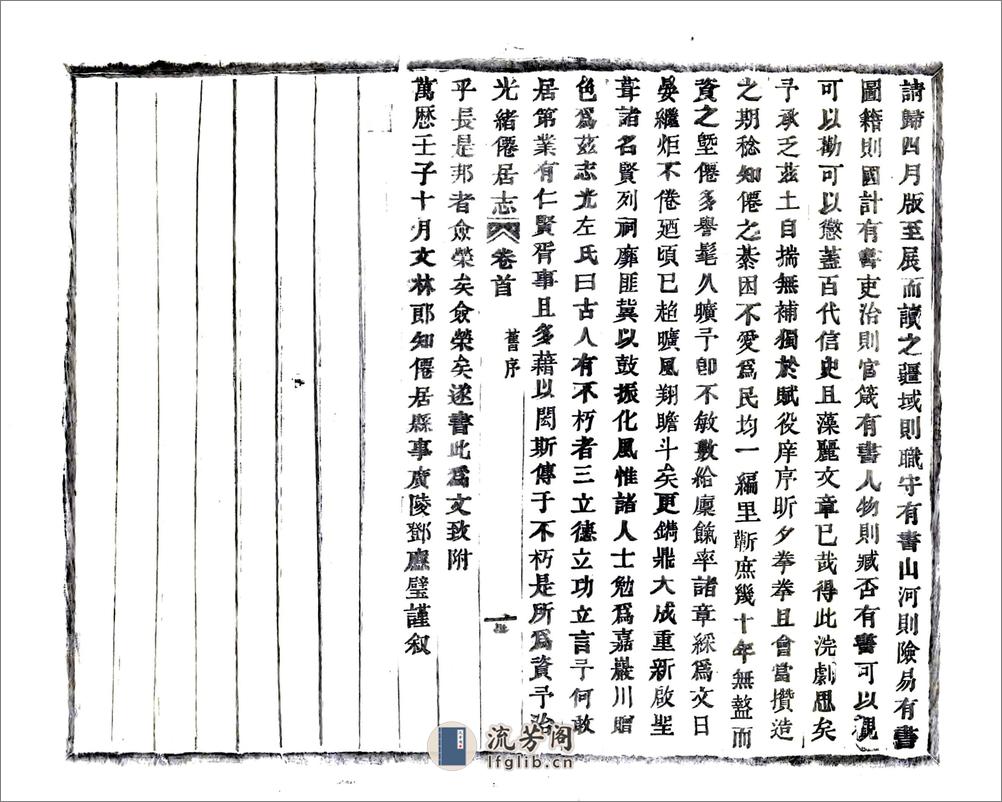 請歸四月版至展而讀之疆域則職守有書山河則險易有書
圖籍則國計有書吏治則官箴有書人物則臧否有書可以觀
可以勸可以懲蓋百代信史且藻麗文章已哉得此浣劇思矣
予承乏茲土自揣無補獨於賦役庠序昕夕拳拳且會當攢造
之期稔知僊之綦困不愛爲民均一編里靳庶幾十年無盭而
資之塈僊多譽髦久曠予卽不敏敷給廩餼率諸章綵爲文日
晏繼炬不倦廼頃已趍曠風翔瞻斗矣更鐫鼎大成重新啟聖
葺諸名賢列祠靡匪冀以鼓振化風惟諸人士勉爲嘉巖川贈
色爲茲志尤左氏曰古人有不朽者三立德立功立言予何敢
居第業有仁賢胥事且多藉以閎斯傳于不朽是所爲資予治
光緒僊居志 卷首 舊序
乎長是邦者僉榮矣僉榮矣遂書此爲文致附
萬歷壬子十月文林郎知僊居縣事廣陵鄧應璧謹叙
流芳阁
lfglib.cn